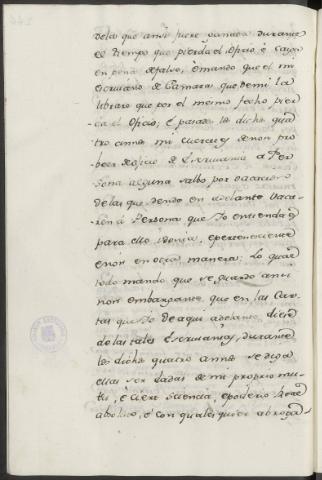 de la que ansi fuere vamida durante
el tiempo que pierda el oficio, e caya
en pena de falso, e mando que el mi
escrivano de Camara que de mi la
librare que por el mesmo fecho pier-
da el Oficio; E pasados los dichos qua
tro annos mi mrd es de non pro
beer de oficio de Escrivania a Per
sona alguna salbo por vacacion
de las que dende en adelante vaca-
ren á Persona que Yo entienda q
para ello idonea, e pertenesciente
e non en otra manera; lo qual
todo mando que se guarde ansi
non embargante que en las Car
tas que Yo de aqui adelante diere
de las tales Escrivanias, durante
los dichos quatro annos se diga
ellas ser dadas de mi proprio mo-
tu, e cierta sciencia, e poderio Real
absoluto, é con qualesquier abrogar